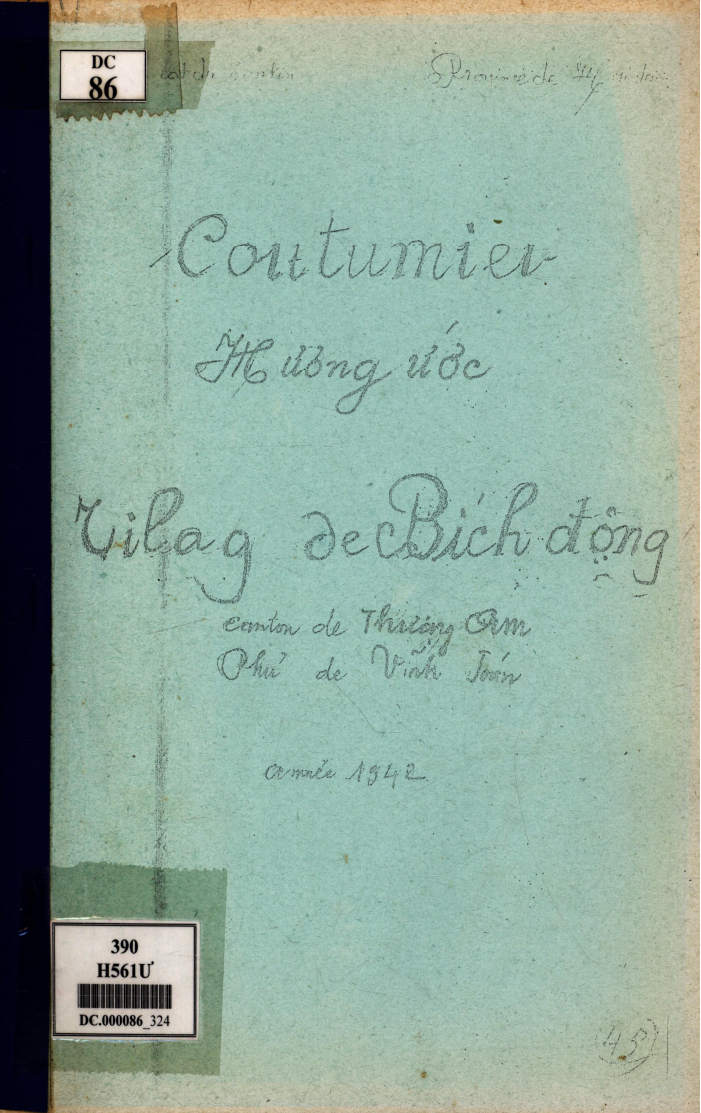 DC
86
Province de
Coutumier
Hương ước
Vilag de Bích động
canton de Thượng Am
Phủ de Vĩnh Toán
année 1942
390
H561Ư
DC.000086_324
45